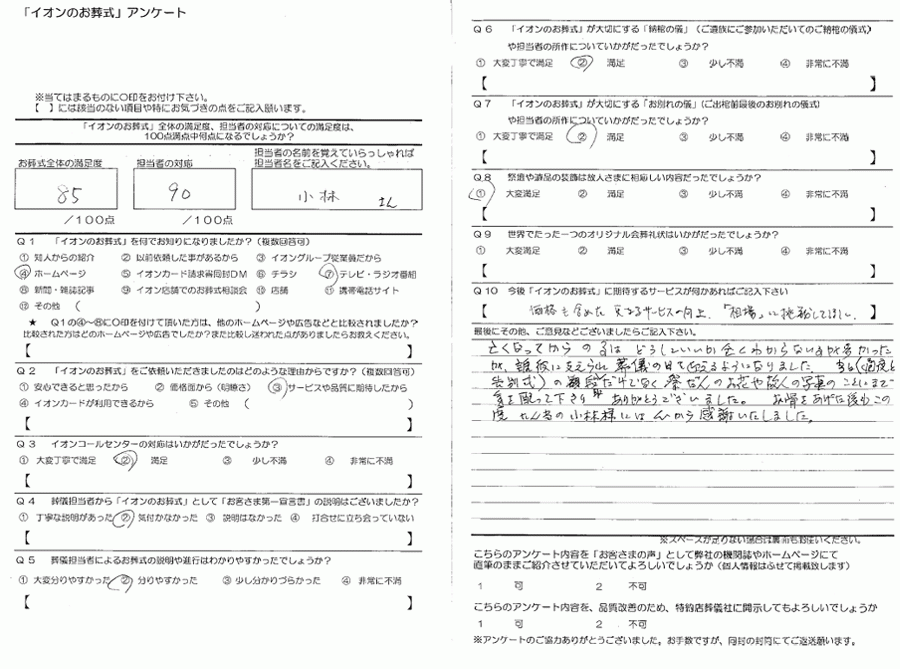 「イオンのお葬式」アンケート
※当てはまるものに○印をお付け下さい。
【　】には該当のない項目や特にお気づきの点をご記入願います。
「イオンのお葬式」全体の満足度、担当者の対応についての満足度は、
100点満点中何点になるでしょうか？
お葬式全体の満足度
担当者の対応
担当者の名前を覚えていらっしゃれば
担当者名をご記入ください。
85
90
小林 さん
／100点
／100点
Q１ 「イオンのお葬式」を何でお知りになりましたか？（複数回答可）
① 知人からの紹介 ② 以前依頼した事があるから ③ イオングループ従業員だから
④ ホームページ ⑤ イオンカード請求書同封DM ⑥ チラシ ⑦ テレビ・ラジオ番組
⑧ 新聞・雑誌記事 ⑨ イオン店舗でのお葬式相談会 ⑩ 店舗 ⑪ 携帯電話サイト
⑫ その他（　）
★ Q１の④～⑧に○印を付けて頂いた方は、他のホームページや広告などと比較されましたか？
比較された方はどのホームページや広告でしたか？また比較し迷われた点がありましたらお教えください。
【　】
Q２ 「イオンのお葬式」をご依頼いただきましたのはどのような理由からですか？（複数回答可）
① 安心できると思ったから ② 価格面から（明瞭さ） ③ サービスや品質に期待したから
④ イオンカードが利用できるから ⑤ その他（　）
【　】
Q３ イオンコールセンターの対応はいかがだったでしょうか？
① 大変丁寧で満足 ② 満足 ③ 少し不満 ④ 非常に不満
【　】
Q４ 葬儀担当者から「イオンのお葬式」として「お客さま第一宣言書」の説明はございましたか？
① 丁寧な説明があった ② 気付かなかった ③ 説明はなかった ④ 打合せに立ち会っていない
【　】
Q５ 葬儀担当者によるお葬式の説明や進行はわかりやすかったでしょうか？
① 大変分りやすかった ② 分りやすかった ③ 少し分かりづらかった ④ 非常に不満
【　】
Q６ 「イオンのお葬式」が大切にする「納棺の儀」（ご遺族にご参加いただいてのご納棺の儀式）
や担当者の所作についていかがだったでしょうか？
① 大変丁寧で満足 ② 満足 ③ 少し不満 ④ 非常に不満
【　】
Q７ 「イオンのお葬式」が大切にする「お別れの儀」（ご出棺前最後のお別れの儀式）
や担当者の所作についていかがだったでしょうか？
① 大変丁寧で満足 ② 満足 ③ 少し不満 ④ 非常に不満
【　】
Q８ 祭壇や遺品の装飾は故人さまに相応しい内容だったでしょうか？
① 大変満足 ② 満足 ③ 少し不満 ④ 非常に不満
【　】
Q９ 世界でたった一つのオリジナル会葬礼状はいかがだったでしょうか？
① 大変満足 ② 満足 ③ 少し不満 ④ 非常に不満
【　】
Q10 今後「イオンのお葬式」に期待するサービスが何かあればご記入下さい
【 価格も含めた 更なるサービスの向上。「相場」に挑戦してほしい。 】
最後にその他、ご意見などございましたらご記入下さい。
亡くなってからの事は どうしていいか全くわからない事が多かった
が、 に支えられ 葬儀の日を迎えるようになりました。
告別式）の だけでなく や故人の写真のことにまで
気を配って下さり ありがとうございました。 お骨をあげた後もこの
度 の小林様には心から感謝いたしました。
※スペースが足りない場合は裏面もお使いください。
こちらのアンケート内容を「お客さまの声」として弊社の機関誌やホームページにて
直筆のままご紹介させていただいてよろしいでしょうか（個人情報はふせて掲載致します）
1 可 2 不可
こちらのアンケート内容を、品質改善のため、特約店葬儀社に開示してもよろしいでしょうか
1 可 2 不可
※アンケートのご協力ありがとうございました。お手数ですが、同封の封筒にてご返送願います。